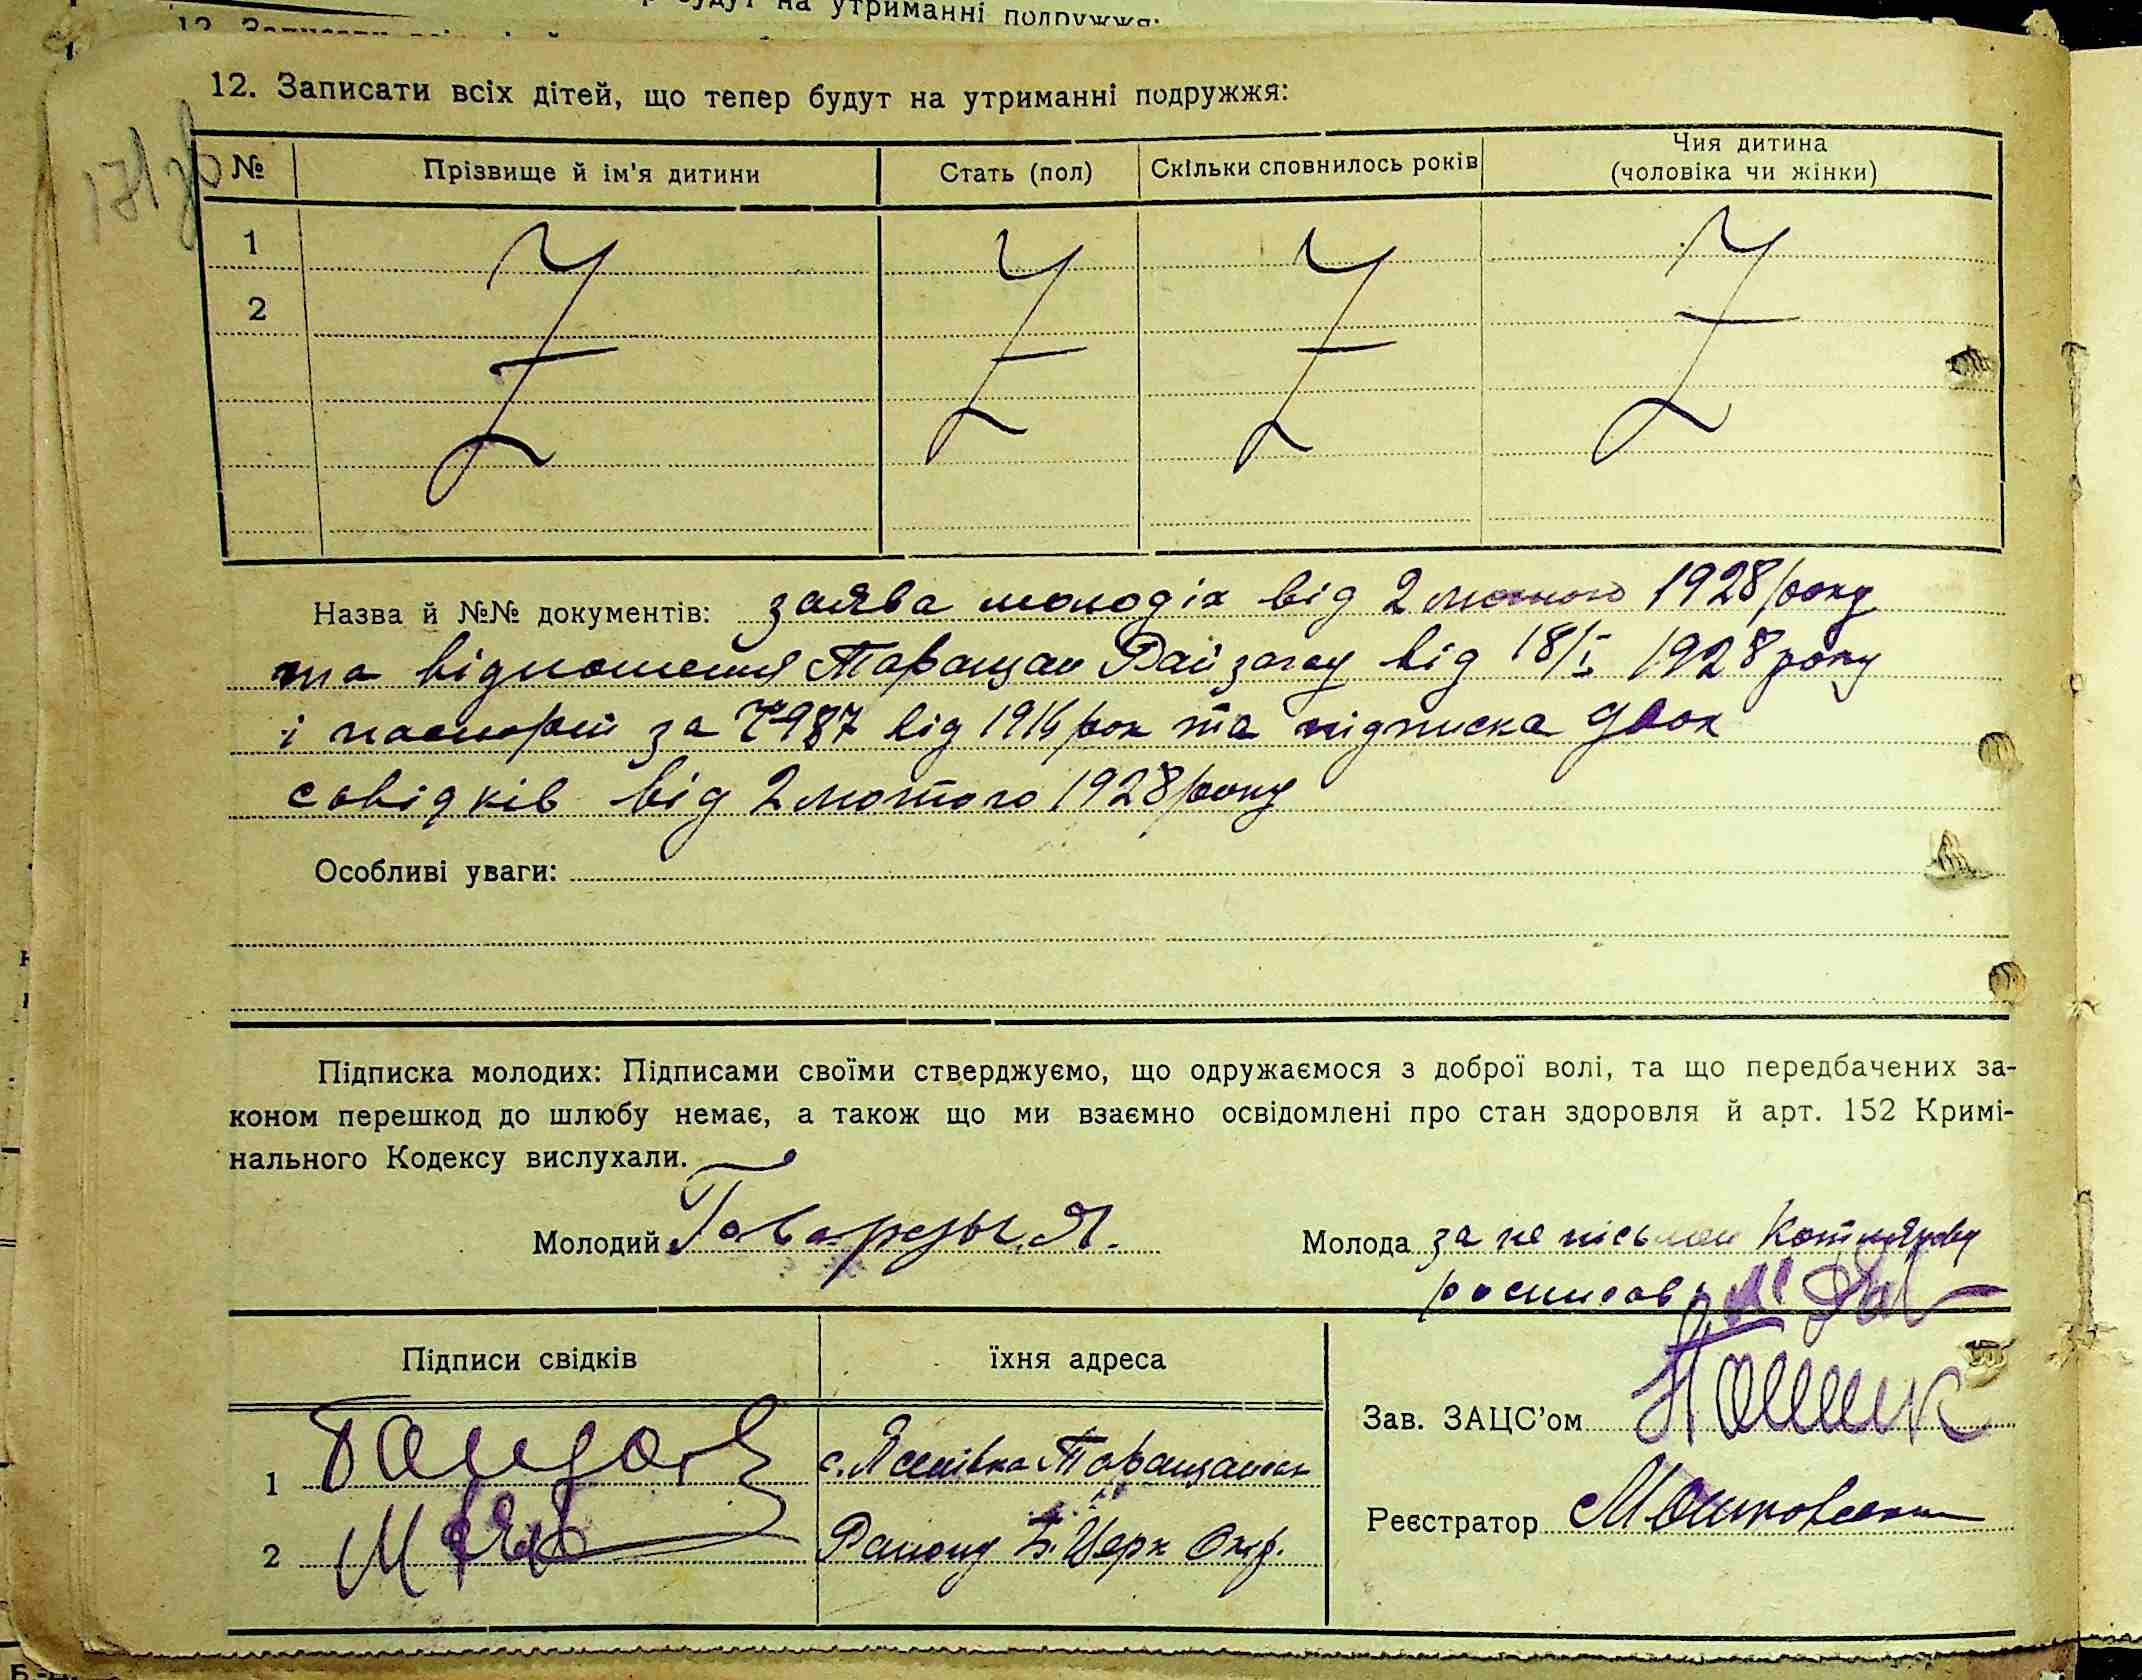 12. Записати всіх дітей, що тепер будут на утриманні подружжя:
№ Прізвище й ім'я дитини Стать (пол) Скільки сповнилось років Чия дитина (чоловіка чи жінки)
1
2
Назва й №№ документів: заява молодіх від 2 лютого 1928 року
та відношення Таращан Райзагсу від 18/I 1928 року
і паспорт за № 987 від 1916 рок та підписка двох
свідків від 2 лютого 1928 року
Особливі уваги:
Підписка молодих: Підписами своїми стверджуємо, що одружаємося з доброї волі, та що передбачених за-
коном перешкод до шлюбу немає, а також що ми взаємно освідомлені про стан здоровля й арт. 152 Кримі-
нального Кодексу вислухали.
Молодий Молода за не письмен Котлярову
росписавь
Підписи свідків їхня адреса
Зав. ЗАЦС'ом
1 с. Ясенівка Таращанськ
Реєстратор
2 Району Б. Церк Окр.